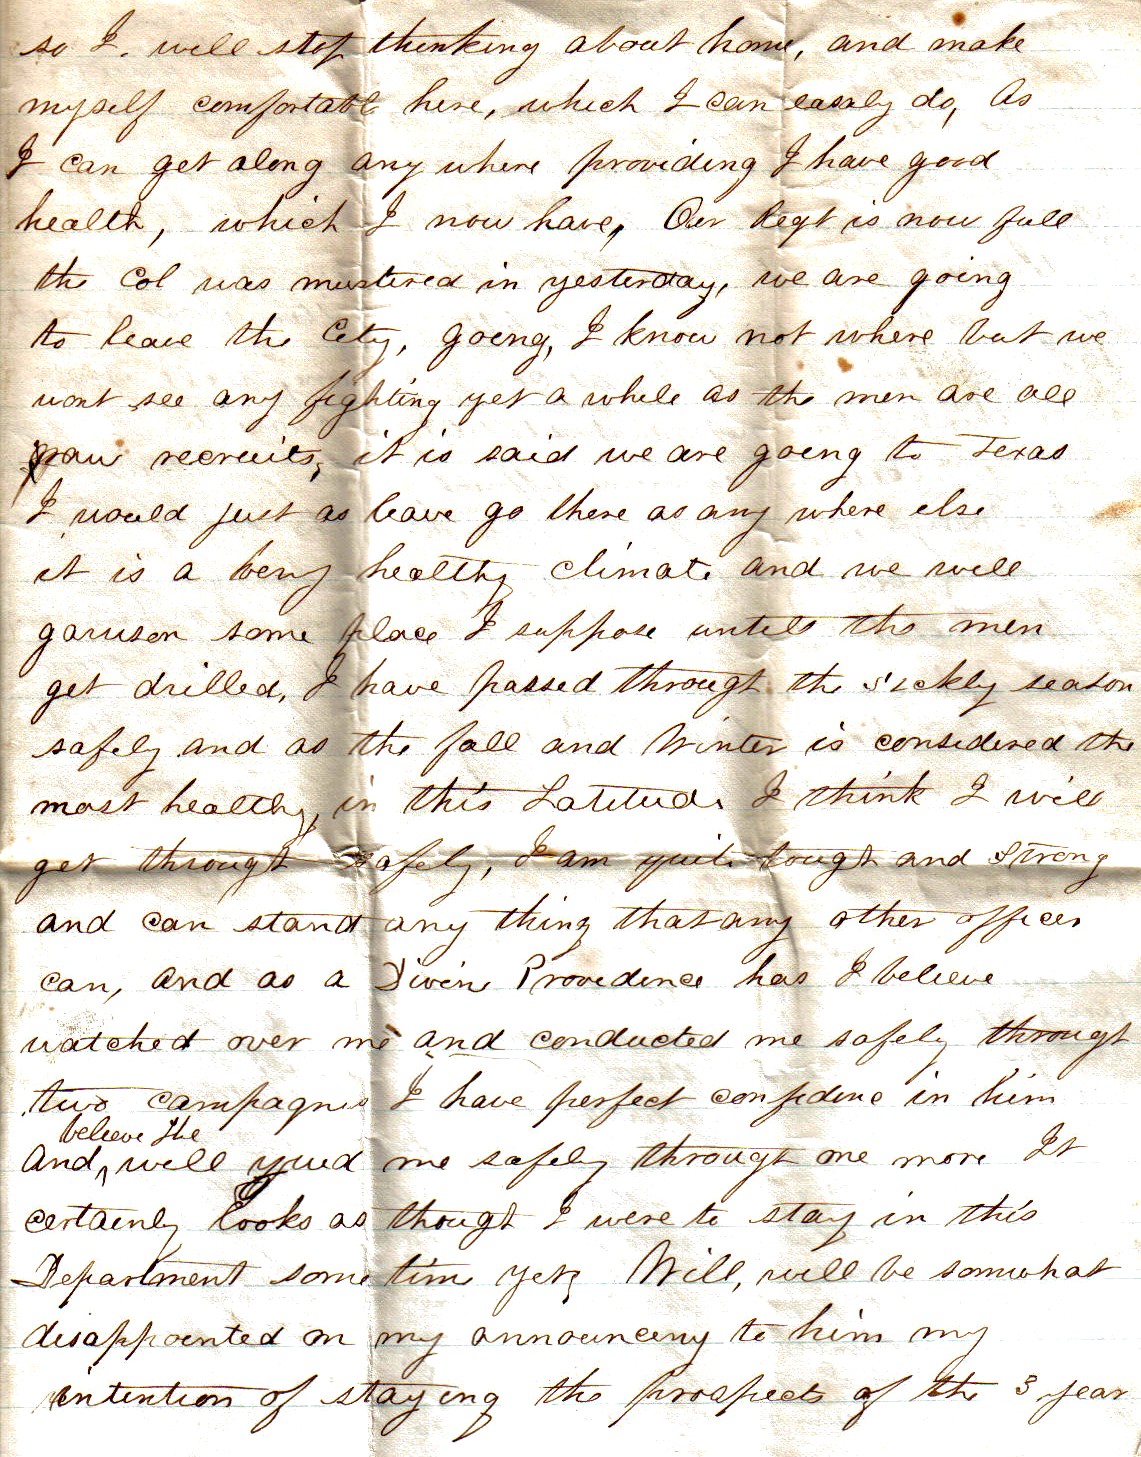 so I will stop thinking about home, and make
myself comfortable here, which I can easaly do, As
I can get along any where providing I have good
health, which I now have, Our Regt is now full
the Col was mustered in yesterday, we are going
to leave the City, going, I know not where but we
wont see any fighting yet a while as the men are all
raw recruits, it is said we are going to Texas
I would just as leave go there as any where else
it is a very healthy climate and we will
garuson some place I suppose untill the men
get drilled, I have passed through the sickly season
safely and as the fall and Winter is considered the
most healthy, in this Latitude I think I will
get through safely, I am quite tough and Strong
and can stand any thing that any other officer
can, and as a Divine Providence has I believe
watched over me and conducted me safely through
two campagnes I have perfect confidence in him
believe He
And, will me safely through one more It
certainly looks as though I were to stay in this
Department some time yet, Will, will be somwhat
disappointed on my announceny to him my
intention of staying the prospects of the 3 year